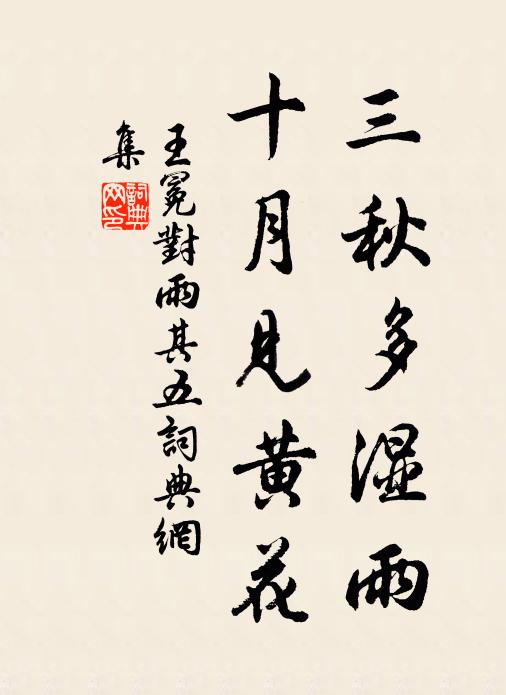 三秋多湿雨
十月見黄花
王冕對雨其五詞典網
集
詞典网印